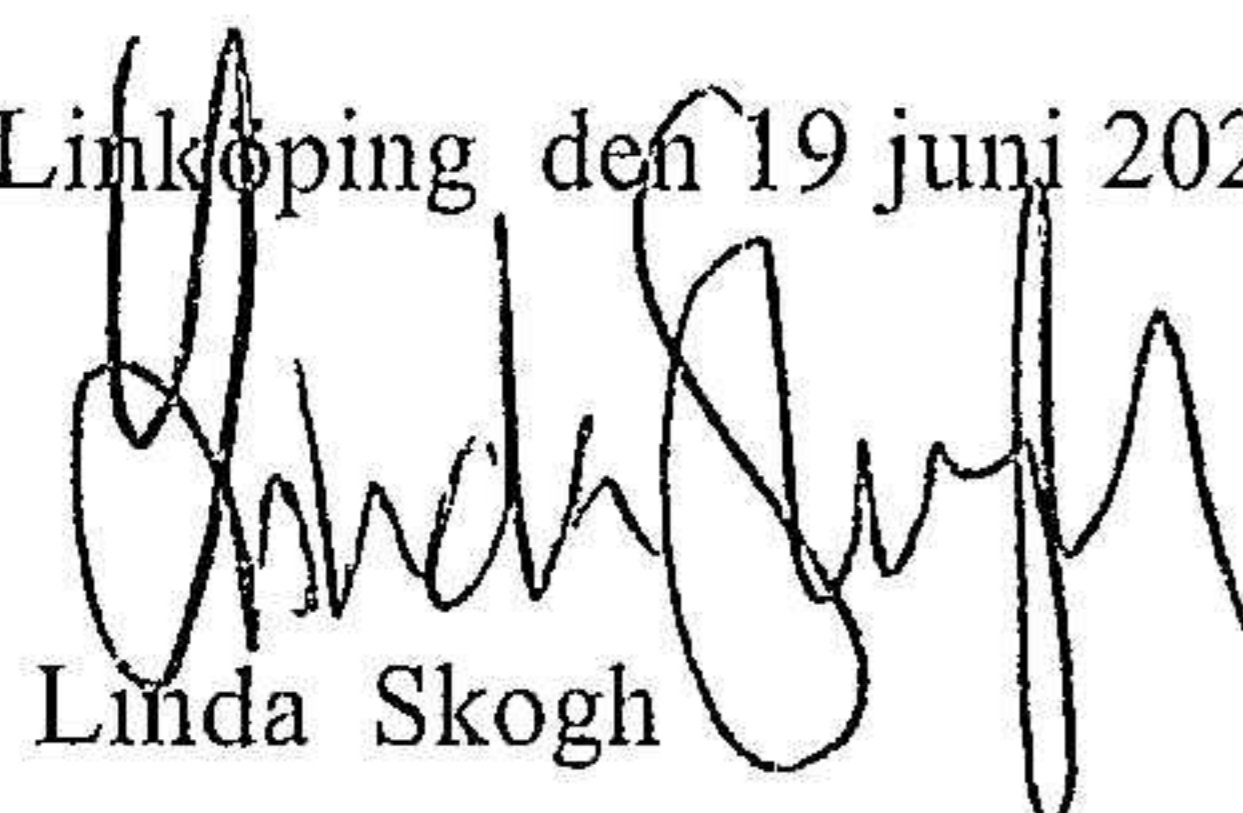 Linköping den 19 juni 202
Linda Skogh